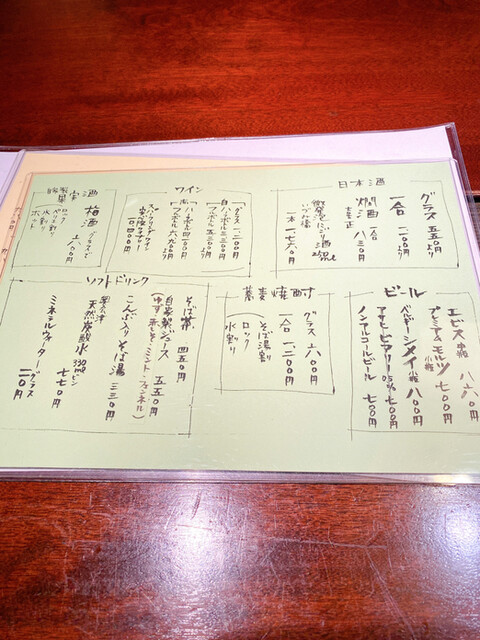 日本酒
グラス 五五〇円より
一合 一一〇〇円より
燗酒 一合 八三〇円
微発泡にごり酒
一本 一七六〇円
ワイン
グラス 一一〇〇円
白 ハーフボトル 三三〇〇円
フルボトル
赤 ハーフボトル 四一〇〇円
フルボトル 六九〇〇円より
スパークリングワイン
自家製
果実酒
梅酒 グラスで
ロック
ソーダ割り
水割り
ホット
ビール
エビス 中瓶 八六〇円
プレミアムモルツ 小瓶 七〇〇円
アサヒ ビアリー 0.5% 七〇〇円
ノンアルコールビール 七〇〇円
蕎麦焼酎
グラス 六〇〇円
一合 一、二〇〇円
そば湯割り
ロック
水割り
ソフトドリンク
そば茶 四五〇円
自家製ジュース 五五〇円
こんぶ入りそば湯 三三〇円
奥会津
天然炭酸水 330mlビン 七七〇円
ミネラルウォーター・グラス